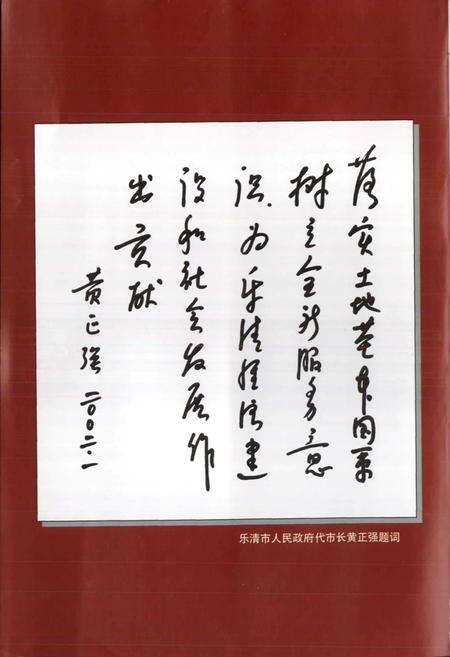 落实土地基本国策
树立全新服务意
识.为乐清经济建
设和社会发展作
出贡献
黄正强 二〇〇二.一
乐清市人民政府代市长黄正强题词